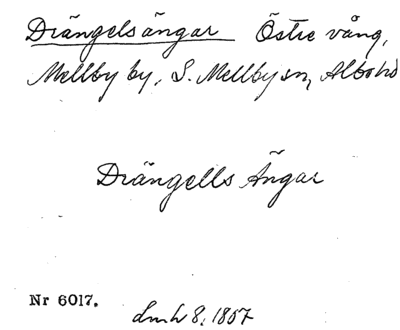 Drängelsängar Östre vång,
Mellby by, S. Mellby sn, Albo hd
Drängells Ängar
Nr 6017.
Lmh 8, 1857